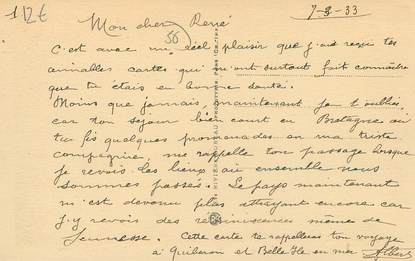 12€
Mon cher René
7-8-33
56
C'est avec un réel plaisir que j'ai reçu tes
aimables cartes qui m'ont surtout fait connaître
que tu étais en bonne santé.
Moins que jamais, maintenant je t'oublie
car ton séjour bien court en Bretagne où
tu fis quelques promenades en ma triste
compagnie, me rappelle ton passage lorsque
je revois les lieux où ensemble nous
sommes passés. Le pays maintenant
m'est devenu plus attrayant encore car
j'y revois des réminiscences même de
jeunesse. Cette carte te rappellera ton voyage
à Quiberon et Belle Ile en mer. Albert